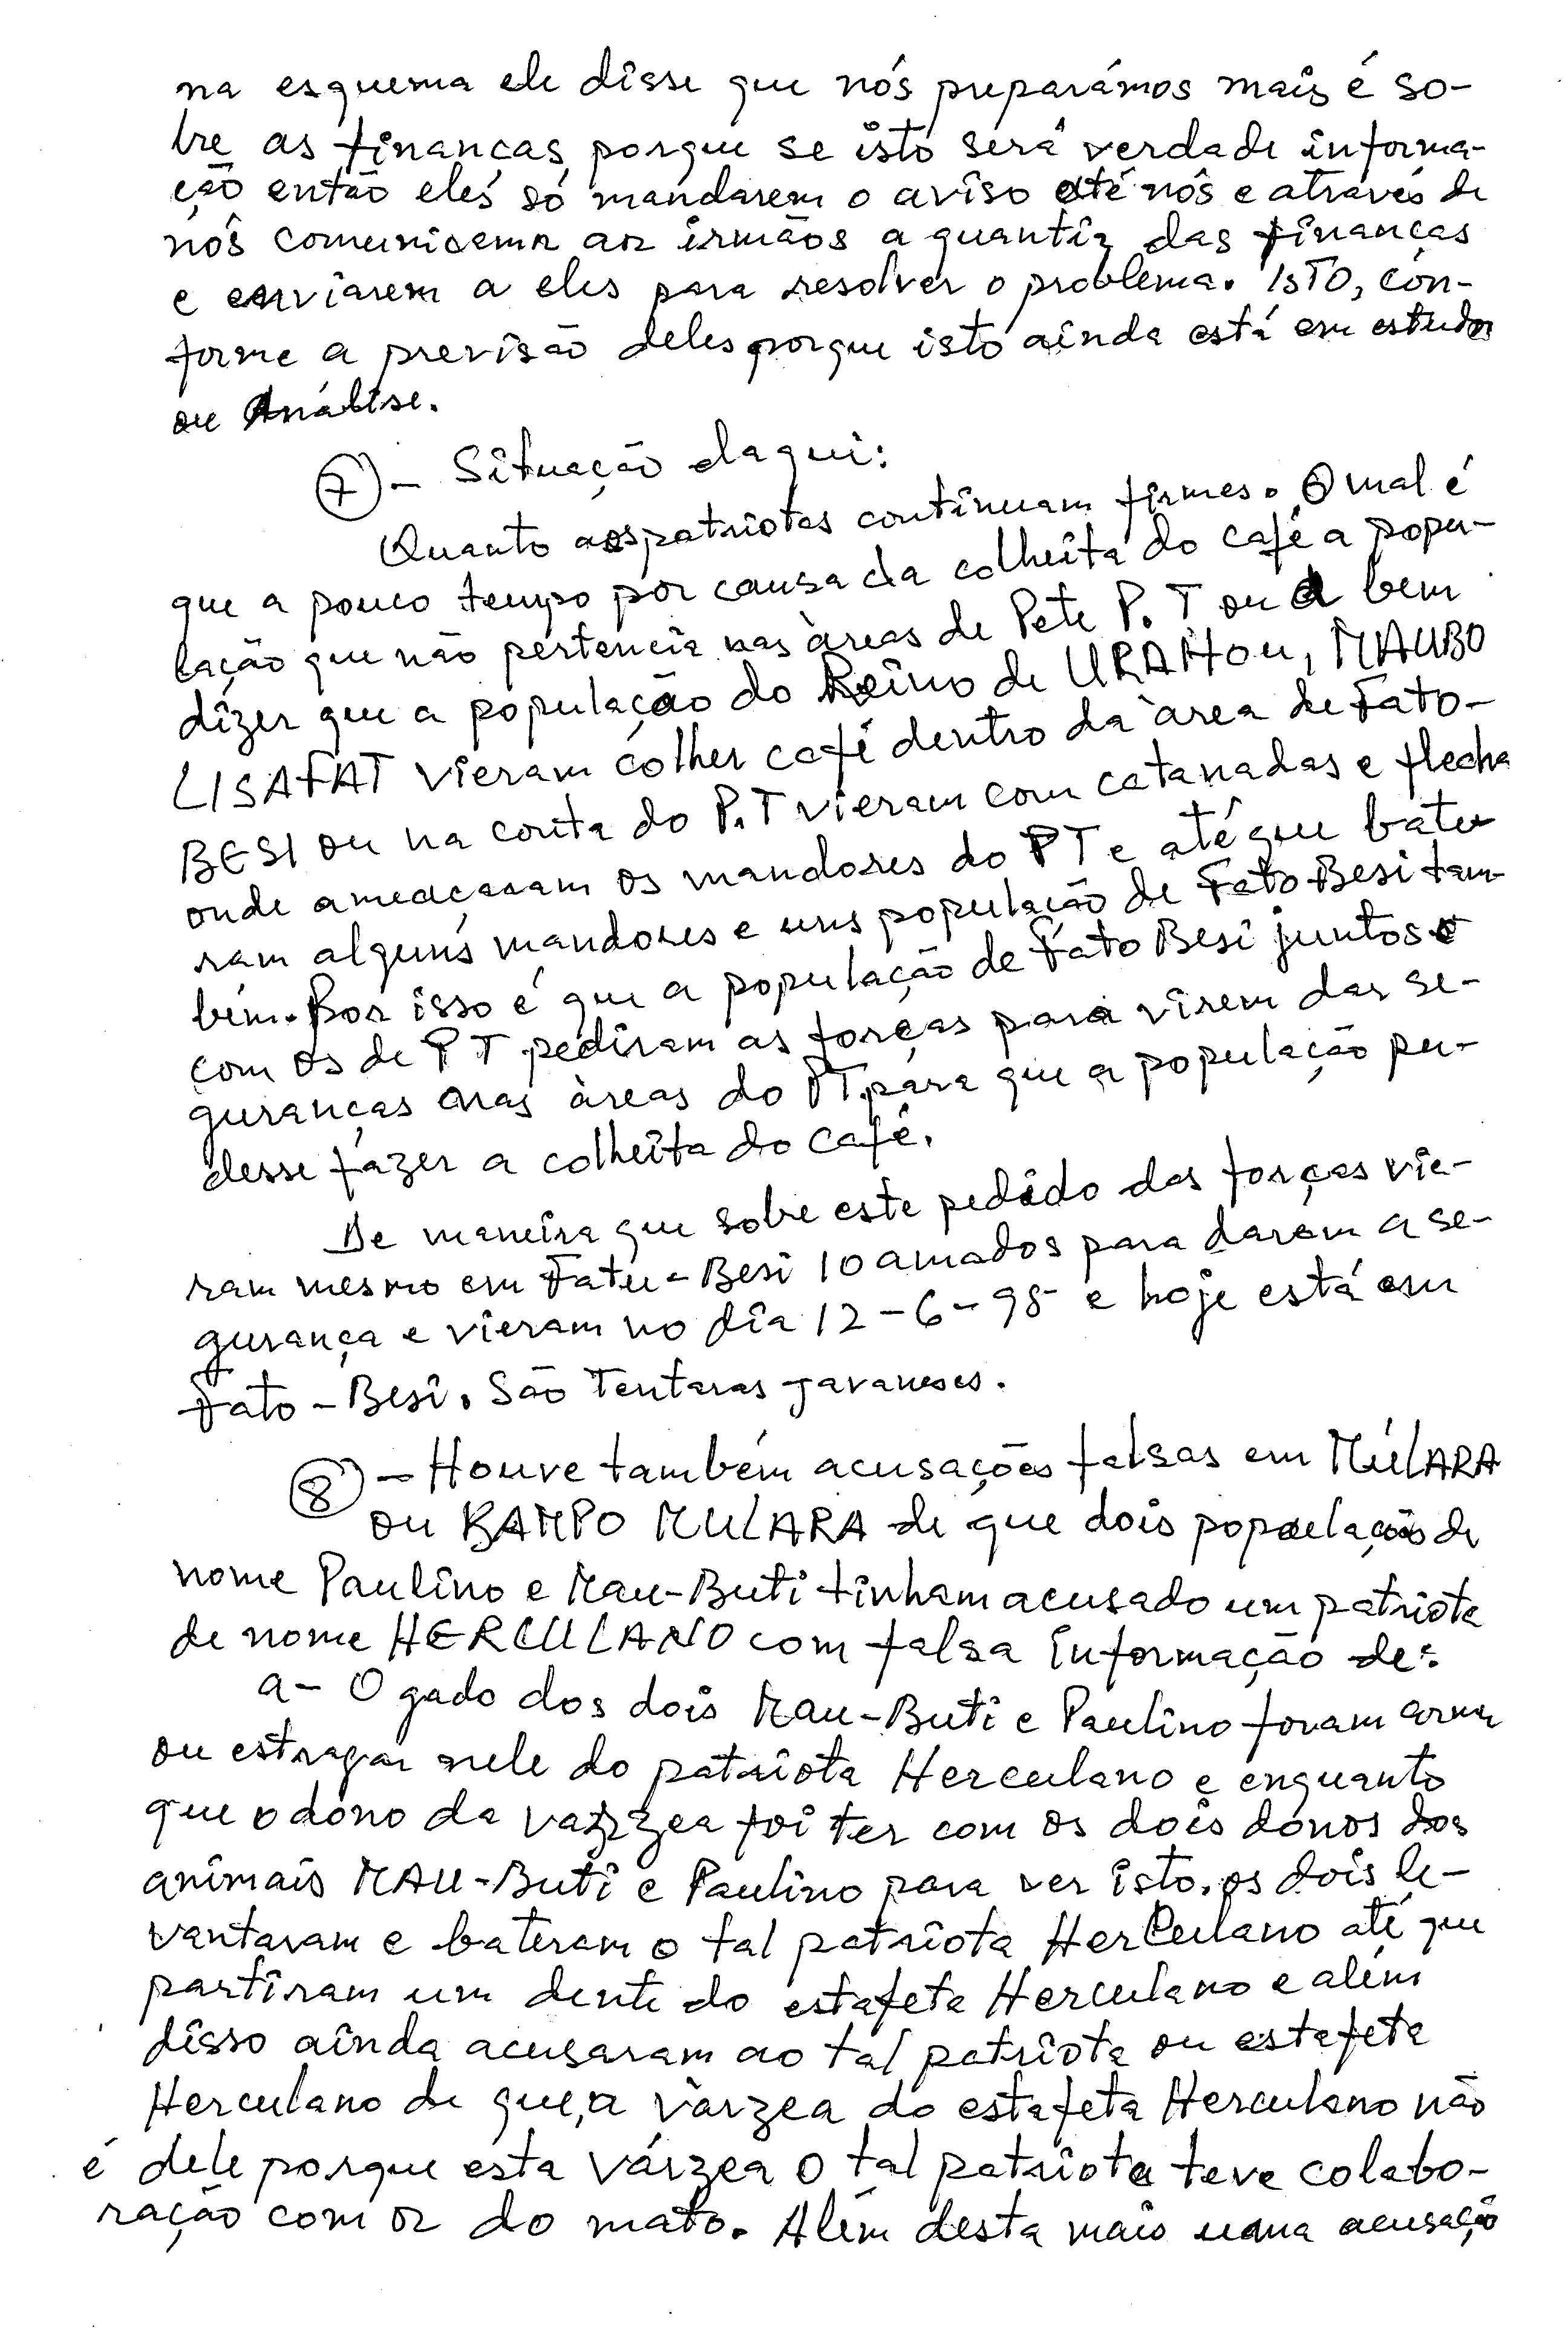 na esquema ele disse que nós preparámos mais é so-
bre as finanças porque se isto será verdade informa-
ção então eles só mandarem o aviso até nós e através de
nós comunicamos aos irmãos a quantia das finanças
e enviarem a eles para resolver o problema. ISTO, con-
forme a previsão deles porque isto ainda está em estudos
ou Análise.
7 - Situação daqui:
Quanto aos patriotas continuam firmes. O mal é
que a pouco tempo por causa da colheita do café a popu-
lação que não pertencia nas àreas de Pete P. T ou a bem
dizer que a população do Reino de URAHOU, MAUBO
LISAFAT vieram colher café dentro da àrea de Fato-
BESI ou na conta do P.T vieram com catanadas e flecha
onde ameaçaram os mandores do PT e até que bate
ram alguns mandores e uns população de Fato-Besi tam-
bém. Por isso é que a população de Fato Besi juntos
com os de PT pediram as forças para virem dar se-
guranças nas àreas do PT para que a população pu-
desse fazer a colheita do café.
De maneira que sobre este pedido das forças vie-
ram mesmo em Fatu-Besi 10 amados para darem a se-
gurança e vieram no dia 12-6-95 e hoje está em
Fato-Besi. São Tentaras Javaneses.
8 - Houve também acusações falsas em MÚLARA
ou KAMPO MULARA de que dois população de
nome Paulino e Mau-Buti tinham acusado um patriota
de nome HERCULANO com falsa informação de:
a- O gado dos dois Mau-Buti e Paulino foram
ou estragar nele do patriota Herculano e enquanto
que o dono da vazzea foi ter com os dois donos dos
animais MAU-Buti e Paulino para ver isto, os dois le-
vantaram e bateram o tal patriota Herculano até que
partiram um dente do estafeta Herculano e além
disso ainda acusaram ao tal patriota ou estafeta
Herculano de que, a vàrzea do estafeta Herculano não
é dele porque esta várzea o tal patriota teve colabo-
ração com os do mato. Além desta mais uma acusação